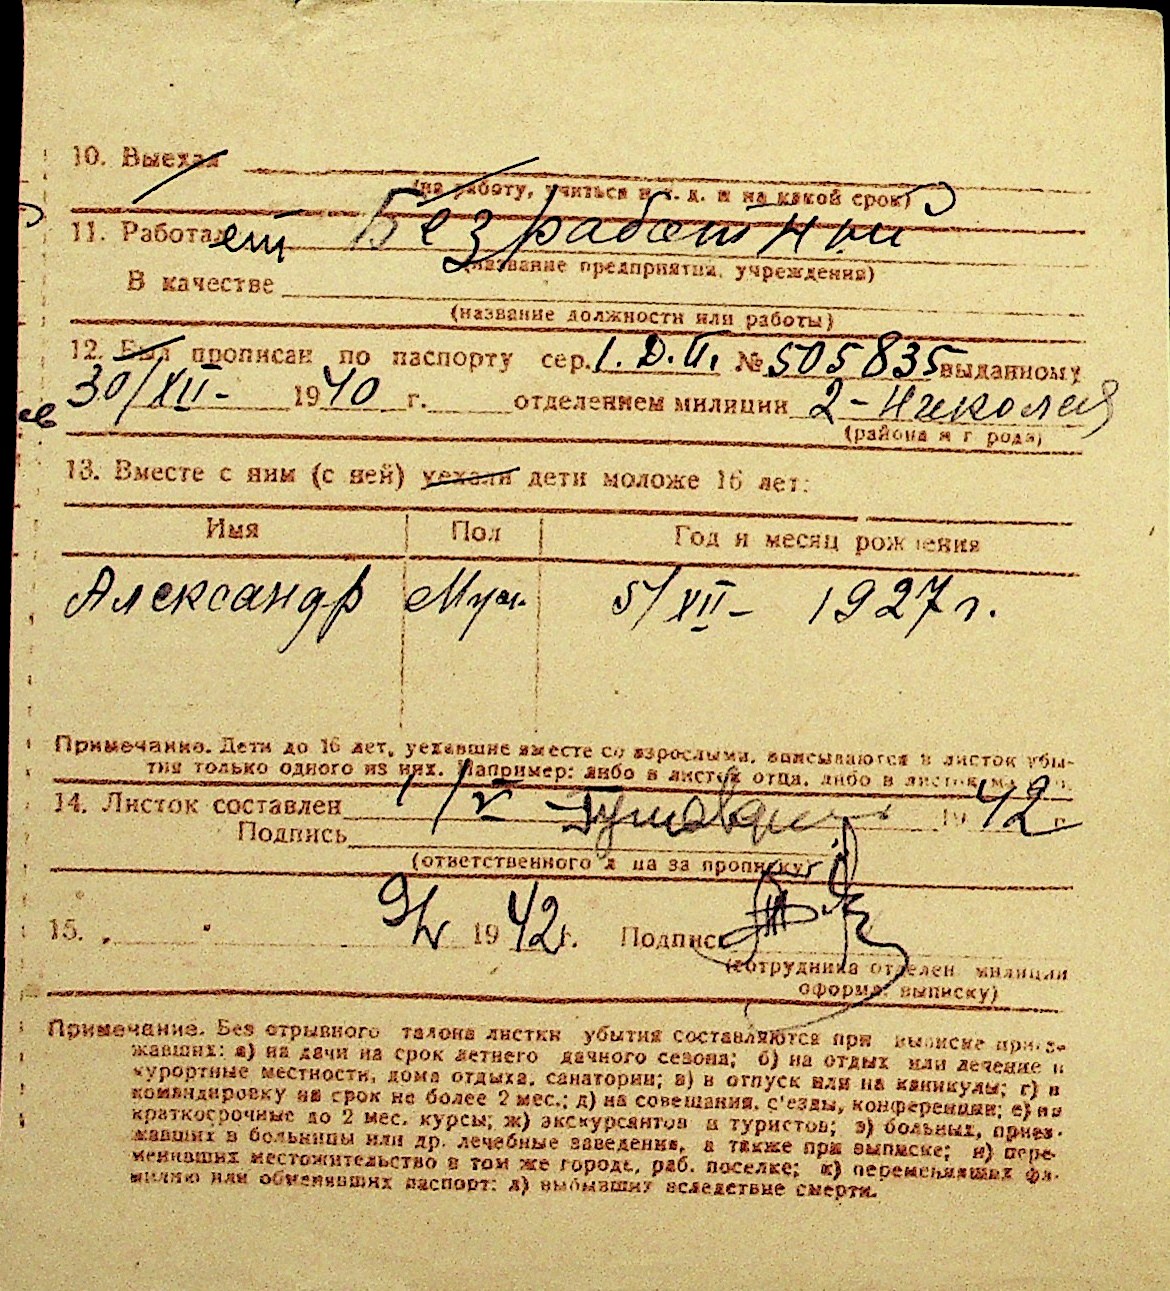 10. Выехал
(на работу, учиться и т. д. и на какой срок)
11. Работает Безработный
(название предприятия, учреждения)
В качестве
(название должности или работы)
12. Был прописан по паспорту сер. I. Д.П. № 505835 выданному
30/XII- 1940 г. отделением милиции 2-Николаев
(района и города)
13. Вместе с ним (с ней) уехали дети моложе 16 лет:
Имя Пол Год и месяц рождения
Александр Муж. 5/XII- 1927 г.
Примечание. Дети до 16 лет, уехавшие вместе со взрослыми, вписываются в листок убы-
тия только одного из них. Например: либо в листок отца, либо в листок
14. Листок составлен 1/V 1942 г.
Подпись
(ответственного лица за прописку)
15. 9/V 1942 г. Подпись
(сотрудника отделен милиции
оформ. выписку)
Примечание. Без отрывного талона листки убытия составляются при выписке приез-
жавших: а) на дачи на срок летнего дачного сезона; б) на отдых или лечение в
курортные местности, дома отдыха, санатории; в) в отпуск или на каникулы; г) в
командировку на срок не более 2 мес.; д) на совещания, с'езды, конференции; е) на
краткосрочные до 2 мес. курсы; ж) экскурсантов и туристов; з) больных, приез-
жавших в больницы или др. лечебные заведения, а также при выписке; и) пере-
менивших местожительство в том же городе, раб. поселке; к) переменивших фа-
милию или обменивших паспорт; л) выбывших вследствие смерти.